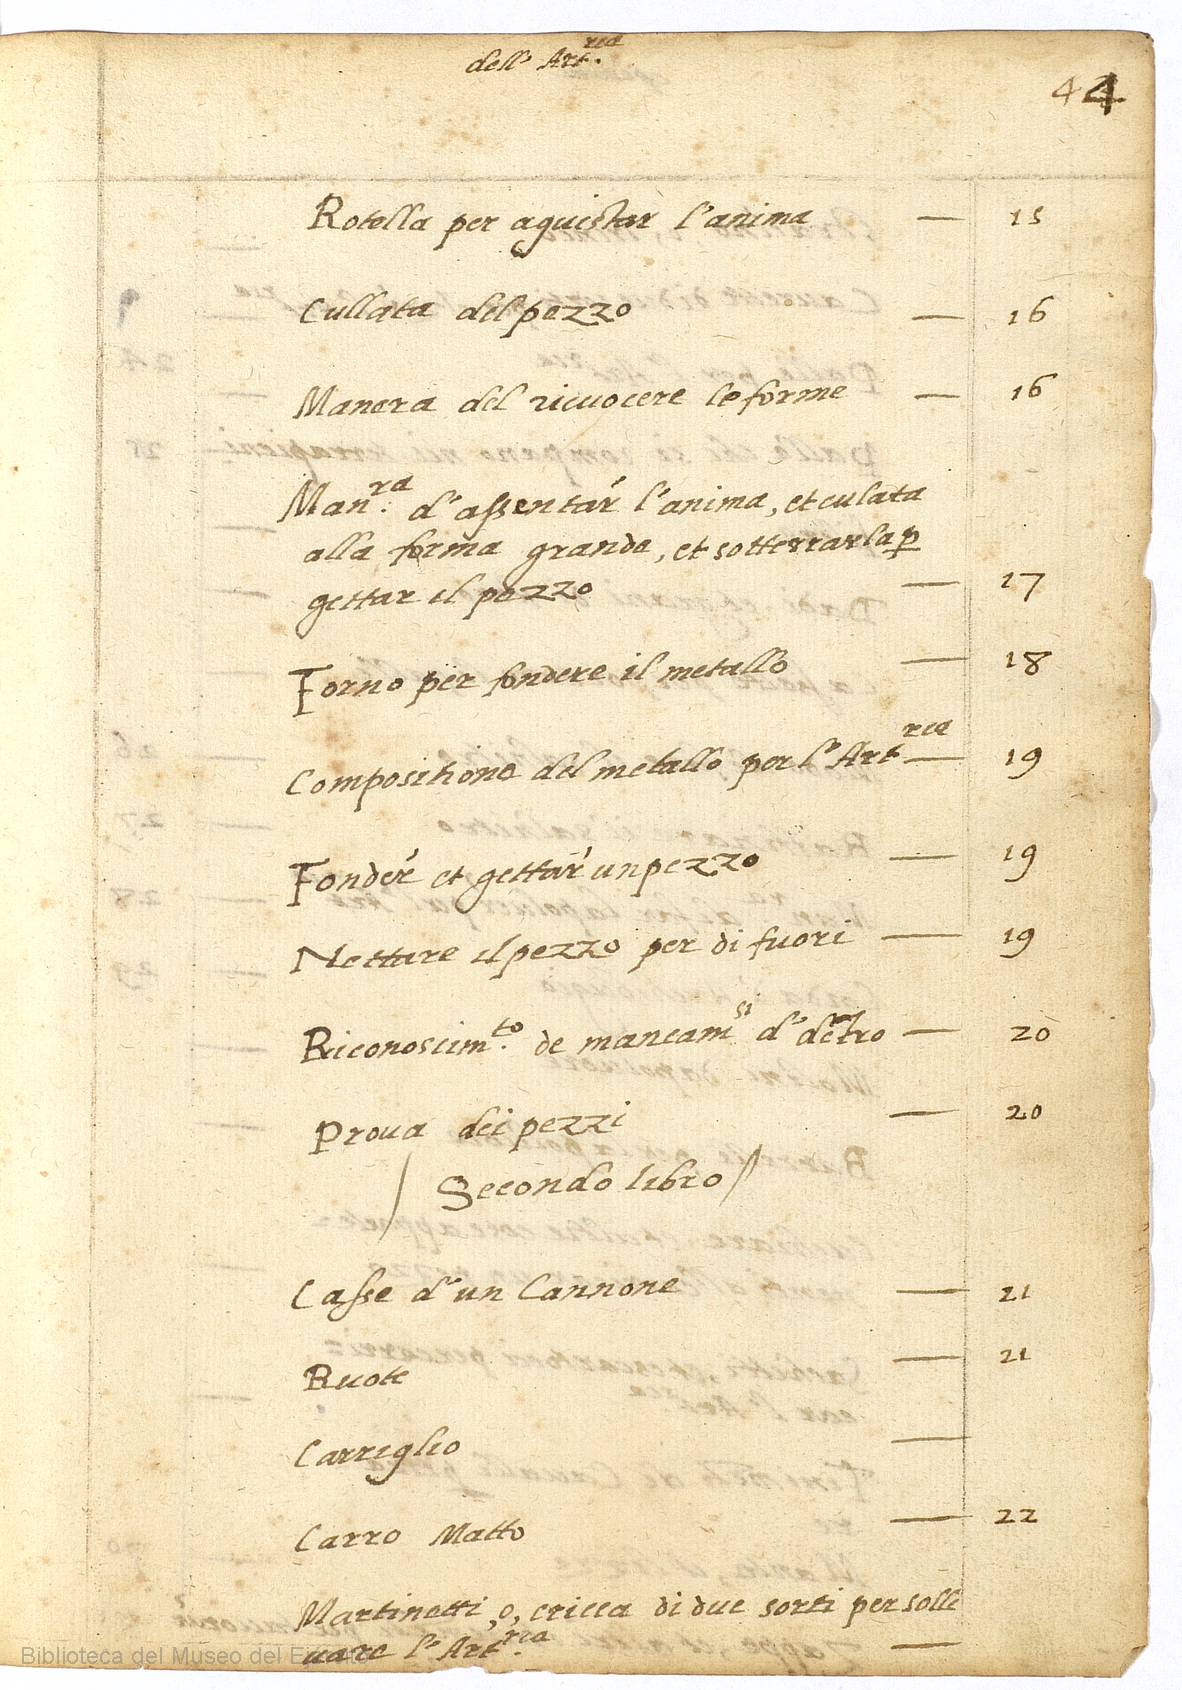 dell' Art.ria
44
Rotella per aguistar l'anima — 15
Cullata del pezzo — 16
Manera del ricuocere le forme — 16
Man.ra d'assentar l'anima, et culata
alla forma granda, et sotterrarla p
gettar il pezzo — 17
Forno per fondere il metallo — 18
Compositione del metallo per l'Artria — 19
Fonder et gettar un pezzo — 19
Nettare il pezzo per di fuori — 19
Riconoscim.to de mancamti d'detro — 20
Prova dei pezzi — 20
/ Secondo libro /
Casse d'un Cannone — 21
Ruote — 21
Carriglio —
Carro Matto — 22
Martinetti, o, cricca di due sorti per solle
uare l'Art.ria —
Biblioteca del Museo del Ejército